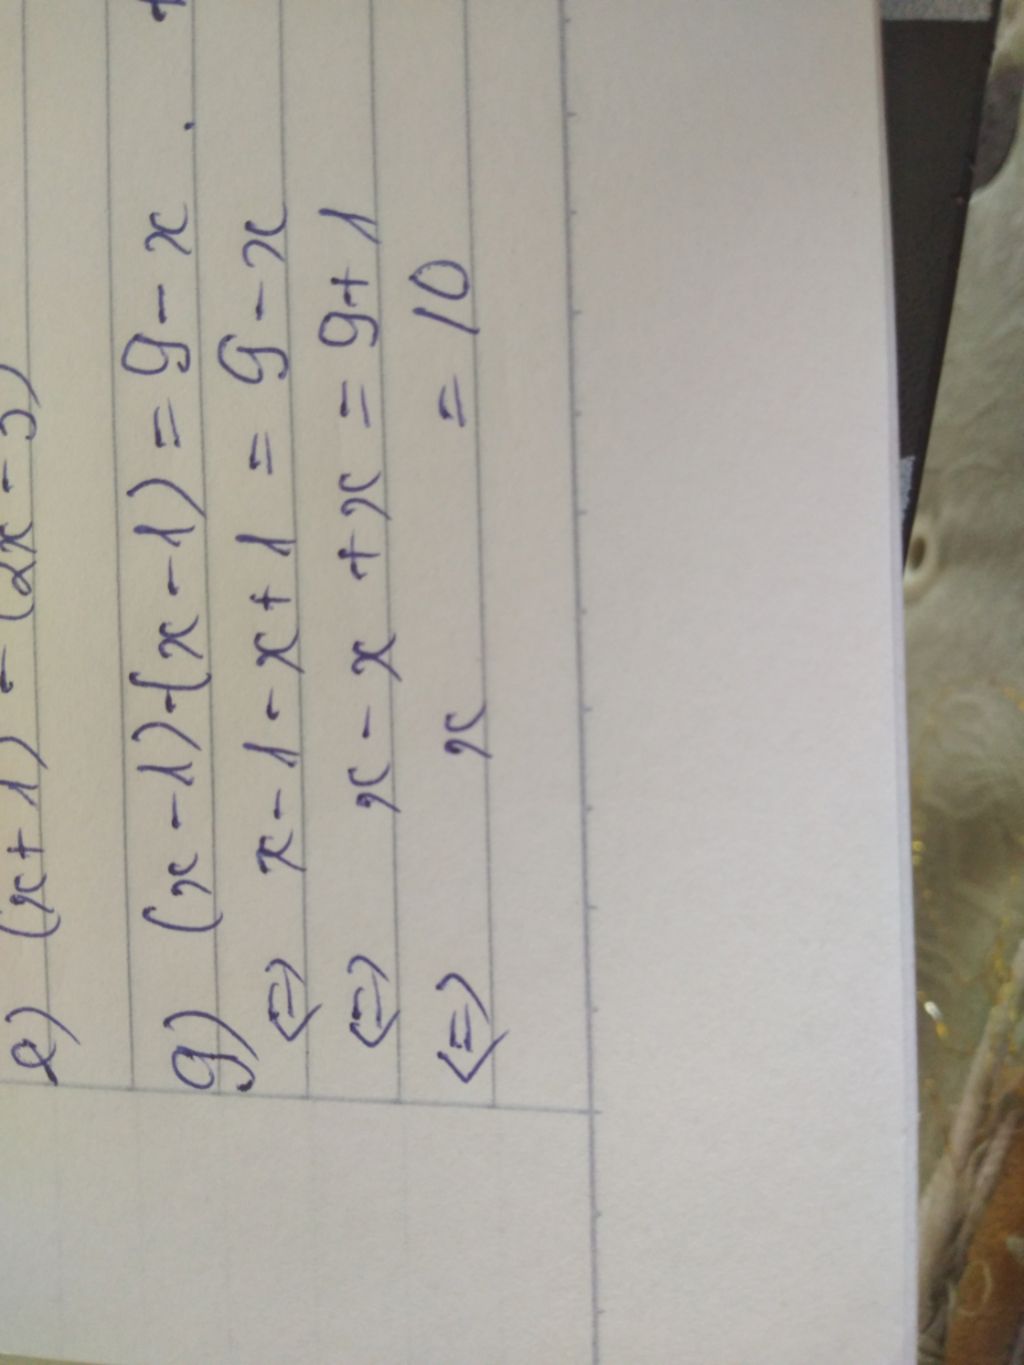 e) (x+1) - (2x-3)
g) (x-1)-(x-1) = 9-x.
<=> x-1-x+1 = 9-x
<=> x-x+x = 9+1
<=> x = 10